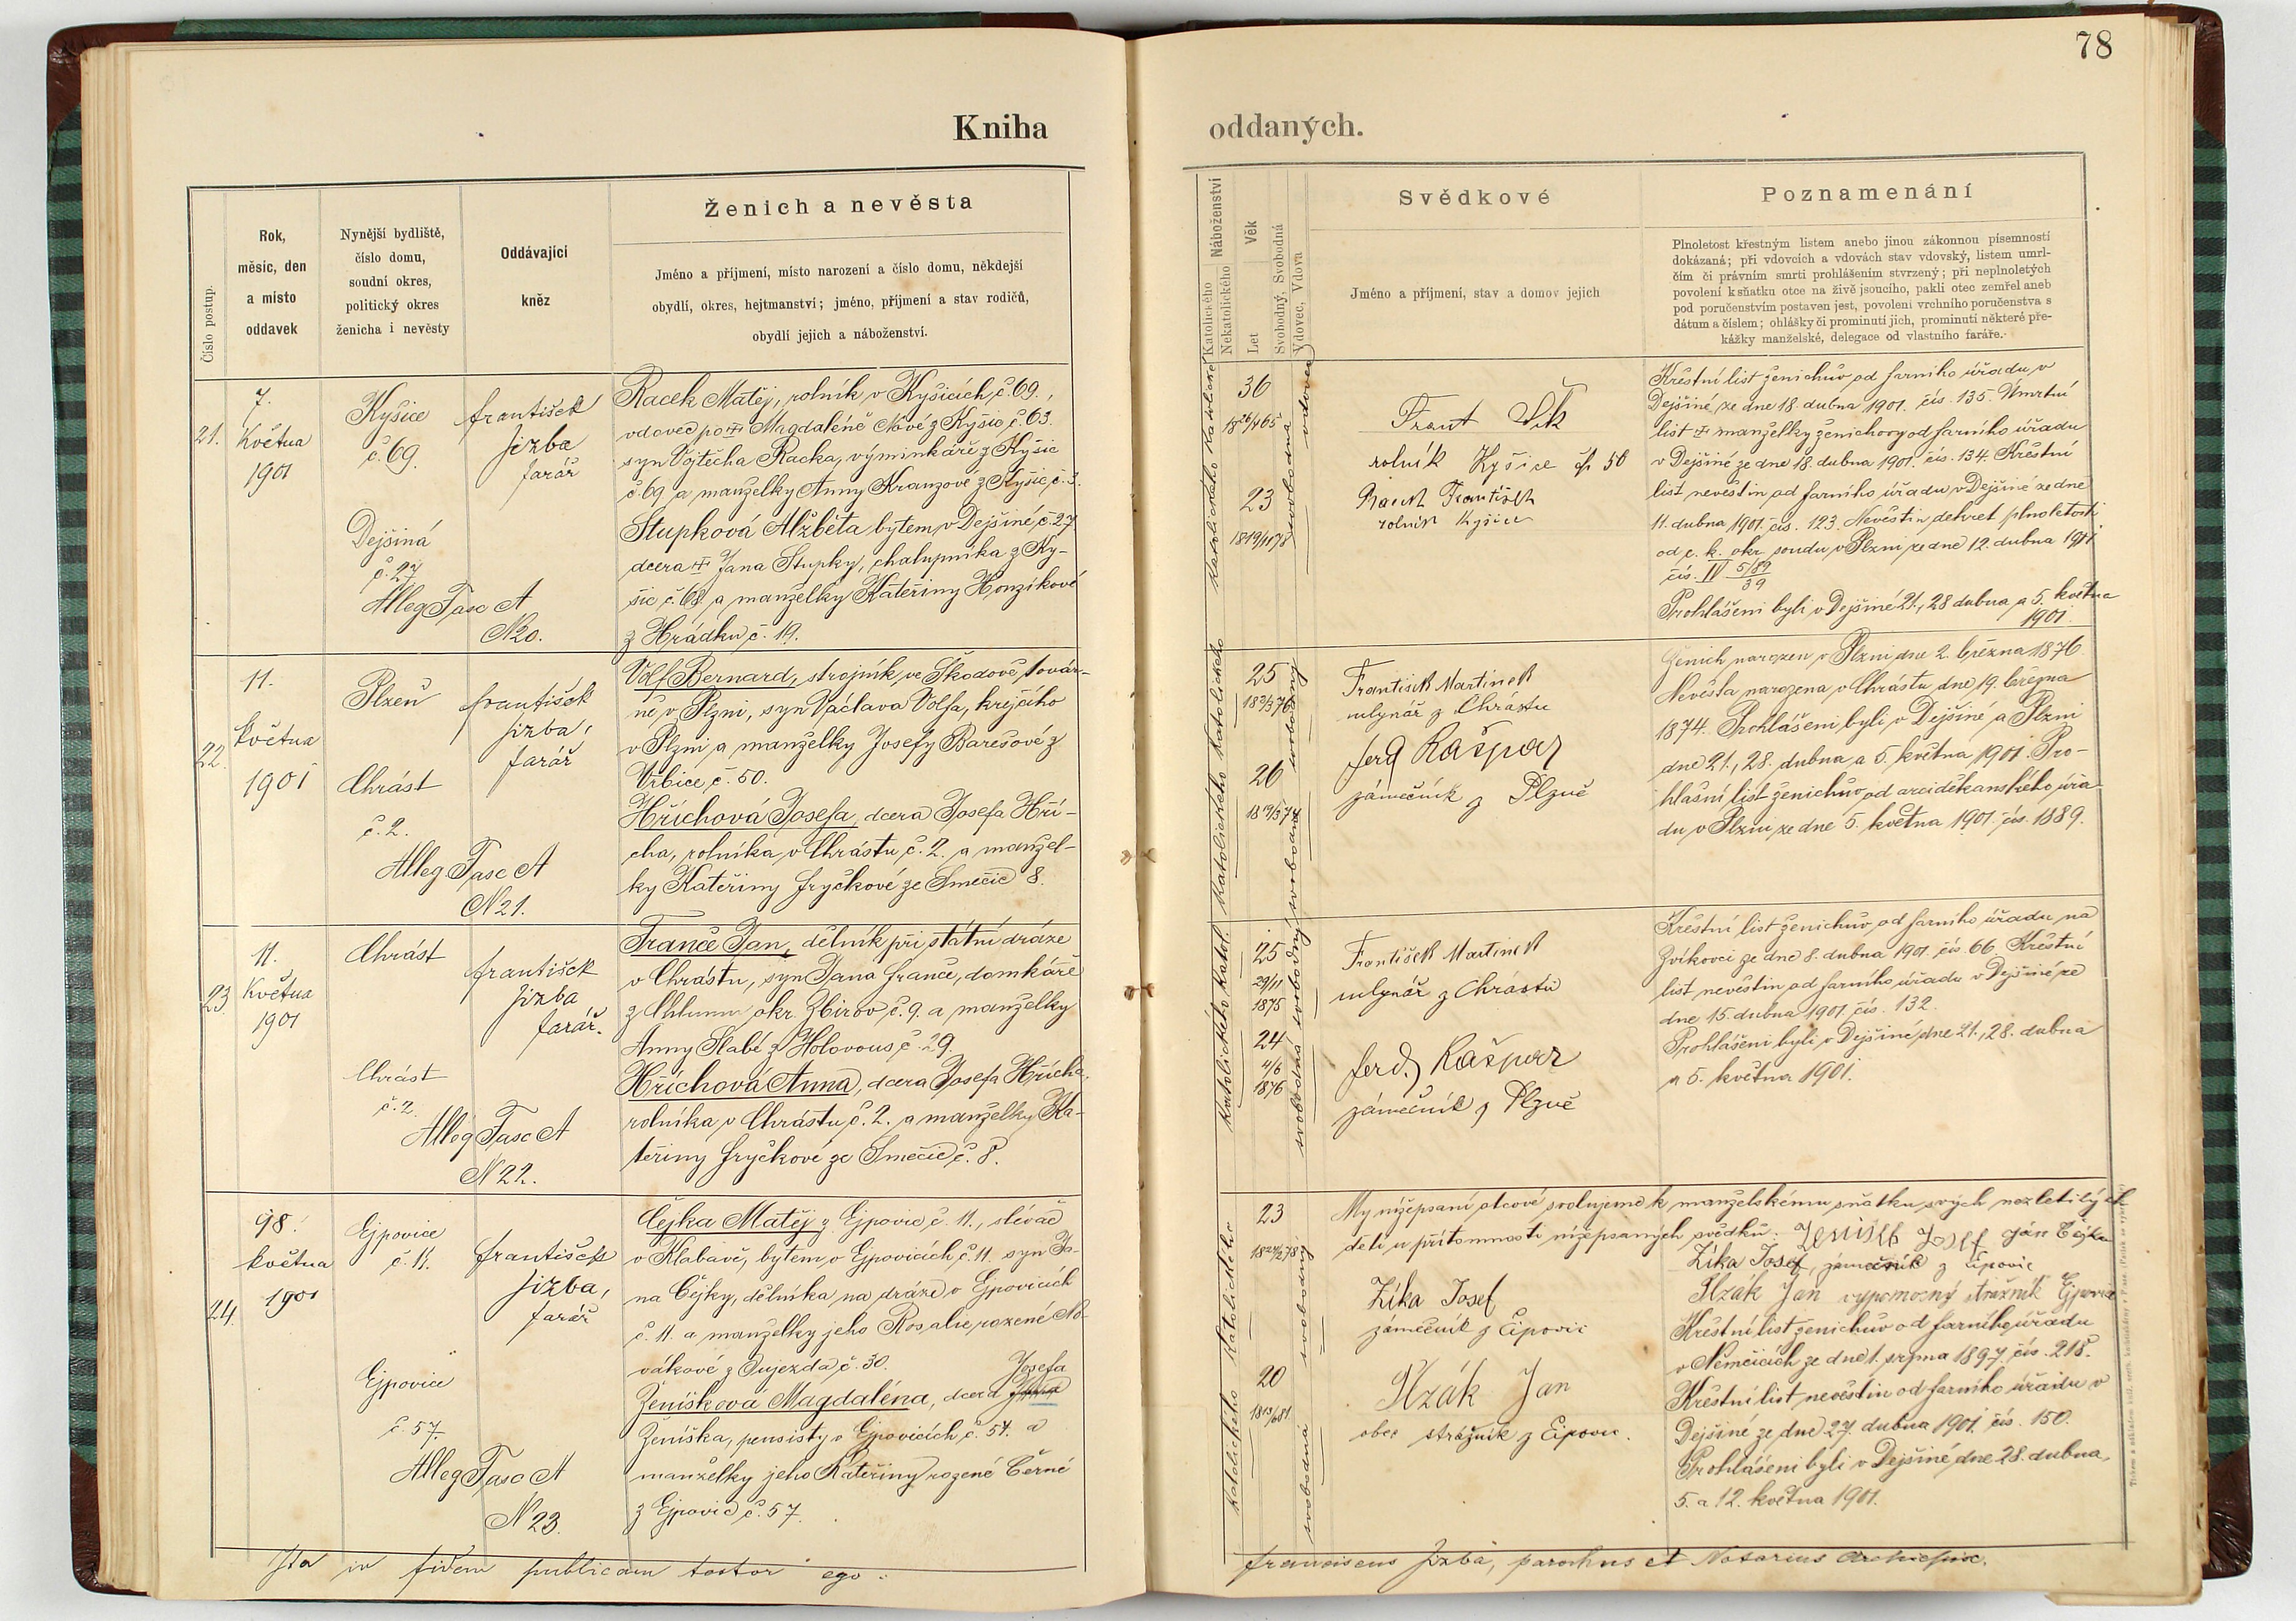 78
Kniha
oddaných.
Číslo postup.
Rok,
měsíc, den
a místo
oddavek
Nynější bydliště,
číslo domu,
soudní okres,
politický okres
ženicha i nevěsty
Oddávající
kněz
Ženich a nevěsta
Jméno a příjmení, místo narození a číslo domu, někdejší
obydlí, okres, hejtmanství; jméno, příjmení a stav rodičů,
obydlí jejich a náboženství.
Náboženství
Katolického
Nekatolického
Věk
Let
Svobodný, Svobodná
Vdovec, Vdova
Svědkové
Jméno a příjmení, stav a domov jejich
Poznamenání
Plnoletost křestným listem anebo jinou zákonnou písemností
dokázaná; při vdovcích a vdovách stav vdovský, listem umrl-
čím či právním smrti prohlášením stvrzený; při neplnoletých
povolení k sňatku otce na živě jsoucího, pakli otec zemřel aneb
pod poručenstvím postaven jest, povolení vrchního poručenstva s
dátum a číslem; ohlášky či prominutí jich, prominutí některé pře-
kážky manželské, delegace od vlastního faráře.
21.
7.
Května
1901
Kyšice
č. 69.
Dejšiná
č. 27
Alleg Fasc A
N 20.
František
Jizba
farář
Racek Matěj, rolník v Kyšicích č. 69.,
vdovec po ✝ Magdaléně Nové z Kyšic č. 63.
syn Vojtěcha Racka, výminkáře z Kyšic
č. 69 a manželky Anny Kranzové z Kyšic č. 3.
Stupková Alžběta bytem v Dejšiné č. 27
dcera ✝ Jana Stupky, chalupníka z Ky-
šic č. 68. a manželky Kateřiny Honzíkové
z Hrádku č. 19.
katolického katolické
36
18 26/4 65
23
18 19/11 78
svobodná
vdovec
Frant Šik
rolník Kyšice čp 50
Racek František
rolník Kyšice
Křestní list ženichův od farního úřadu v
Dejšiné ze dne 18. dubna 1901. čís. 135. Úmrtní
list ✝ manželky ženichovy od farního úřadu
v Dejšiné ze dne 18. dubna 1901. čís. 134. Křestní
list nevěstin od farního úřadu v Dejšiné ze dne
11. dubna 1901. čís. 123. Nevěstin dekret plnoletosti
od c. k. okr. soudu v Plzni ze dne 12. dubna 1901
čís. IV 5/89
39
Prohlášeni byli v Dejšiné 21., 28 dubna a 5. května
1901.
22.
11.
května
1901
Plzeň
Chrást
č. 2.
Alleg Fasc A
N 21.
František
Jizba,
farář
Volf Bernard, strojník ve Škodově továr-
ně v Plzni, syn Václava Volfa, krejčího
v Plzni a manželky Josefy Barešové z
Vrbice č. 50.
Hřichová Josefa, dcera Josefa Hři-
cha, rolníka v Chrástu č. 2. a manžel-
ky Kateřiny Fryčkové ze Smečic 8.
katolického katolického
25
18 2/3 76
26
18 19/3 74
svobodná svobodný
František Martínek
mlynář z Chrástu
Ferd Kašpar
zámečník z Plzně
Ženich narozen v Plzni dne 2. března 1876
Nevěsta narozena v Chrástu dne 19. března
1874. Prohlášeni byli v Dejšiné a Plzni
dne 21., 28. dubna a 5. května 1901. Pro-
hlašní list ženichův od arciděkanského úřa-
du v Plzni ze dne 5. května 1901. čís. 1889.
23.
11.
Května
1901
Chrást
Chrást
č. 2.
Alleg Fasc A
N 22.
František
Jizba
farář.
Franče Jan, dělník při státní dráze
v Chrástu, syn Jana Franče, domkáře
z Chlumu okr. Zbirov č. 9. a manželky
Anny Slabé z Holovous č. 29.
Hřichová Anna, dcera Josefa Hřicha,
rolníka v Chrástu č. 2. a manželky Ka-
teřiny Fryčkové ze Smečic č. 8.
katolického katol.
25
29/11
1875
24
4/6
1876
svobodná svobodný
František Martínek
mlynář z Chrástu
Ferd. Kašpar
zámečník z Plzně
Křestní list ženichův od farního úřadu na
Zvíkovci ze dne 8. dubna 1901. čís. 66 Křestní
list nevěstin od farního úřadu v Dejšiné ze
dne 15. dubna 1901. čís. 132.
Prohlášeni byli v Dejšiné dne 21., 28. dubna
a 5. května 1901.
24.
května
1901
Ejpovice
č. 11.
Ejpovice
č. 57.
Alleg Fasc A
N 23.
František
Jizba,
farář
Čejka Matěj z Ejpovic č. 11., slévač
v Klabavě, bytem v Ejpovicích č. 11. syn Ja-
na Čejky, dělníka na dráze v Ejpovicích
č. 11. a manželky jeho Rosalie rozené No-
vákové z Oujezda č. 30.
Josefa
Ženíšková Magdaléna, dcera
Ženíška, pensisty v Ejpovicích č. 57. a
manželky jeho Kateřiny rozené Černé
z Ejpovic č. 57.
katolického katolického
23
20
svobodná svobodný
My nížepsaní otcové svolujeme k manželskému sňatku svých nezletilých
dětí u přítomnosti nížepsaných svědků: Ženíšek Josef Ján Čejka
Zíka Josef, zámečník z Eipovic
Plzák Jan výpomocný strážník Ejpovic
Zíka Josef
zámečník z Eipovic
Plzák Jan
obec strážník z Eipovic.
Křestní list ženichův od farního úřadu
v Němčicích ze dne 1. srpna 1897. čís. 218.
Křestní list nevěstin od farního úřadu v
Dejšiné ze dne 27. dubna 1901. čís. 150.
Prohlášeni byli v Dejšiné dne 28. dubna,
5. a 12. května 1901.
Ita in fidem publicam testor ego:
Franciscus Jizba, parochus et Notarius Archiepisc.